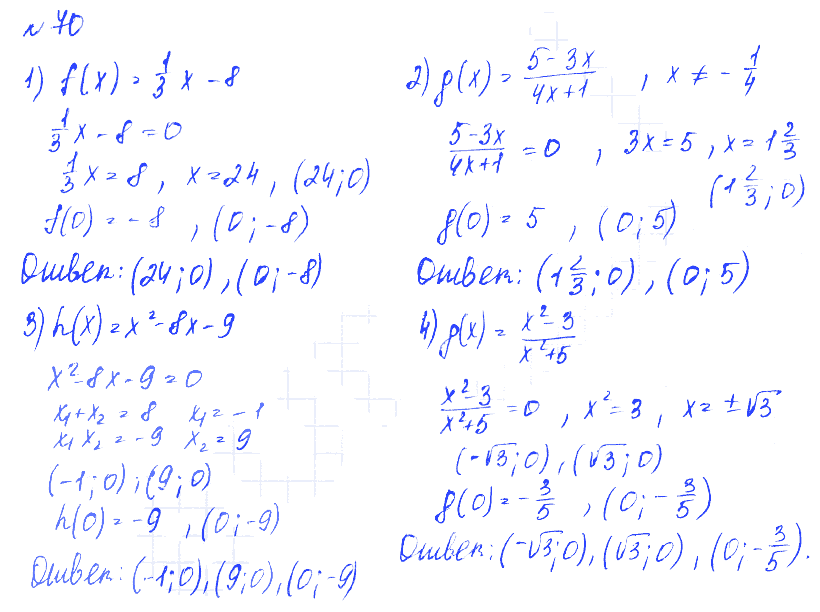 № 70
1) f(x) = 1/3 x - 8
1/3 x - 8 = 0
1/3 x = 8 , x = 24 , (24; 0)
f(0) = -8 , (0; -8)
Ответ: (24; 0) , (0; -8)
2) g(x) = (5-3x)/(4x+1) , x ≠ - 1/4
(5-3x)/(4x+1) = 0 , 3x = 5 , x = 1 2/3
(1 2/3 ; 0)
g(0) = 5 , (0; 5)
Ответ: (1 2/3 ; 0) , (0; 5)
3) h(x) = x² - 8x - 9
x² - 8x - 9 = 0
x₁ + x₂ = 8 x₁ = -1
x₁ x₂ = -9 x₂ = 9
(-1; 0) ; (9; 0)
h(0) = -9 , (0; -9)
Ответ: (-1; 0), (9; 0), (0; -9)
4) g(x) = (x²-3)/(x²+5)
(x²-3)/(x²+5) = 0 , x² = 3 , x = ±√3
(-√3; 0) , (√3; 0)
g(0) = - 3/5 , (0; - 3/5)
Ответ: (-√3; 0), (√3; 0) , (0; - 3/5).